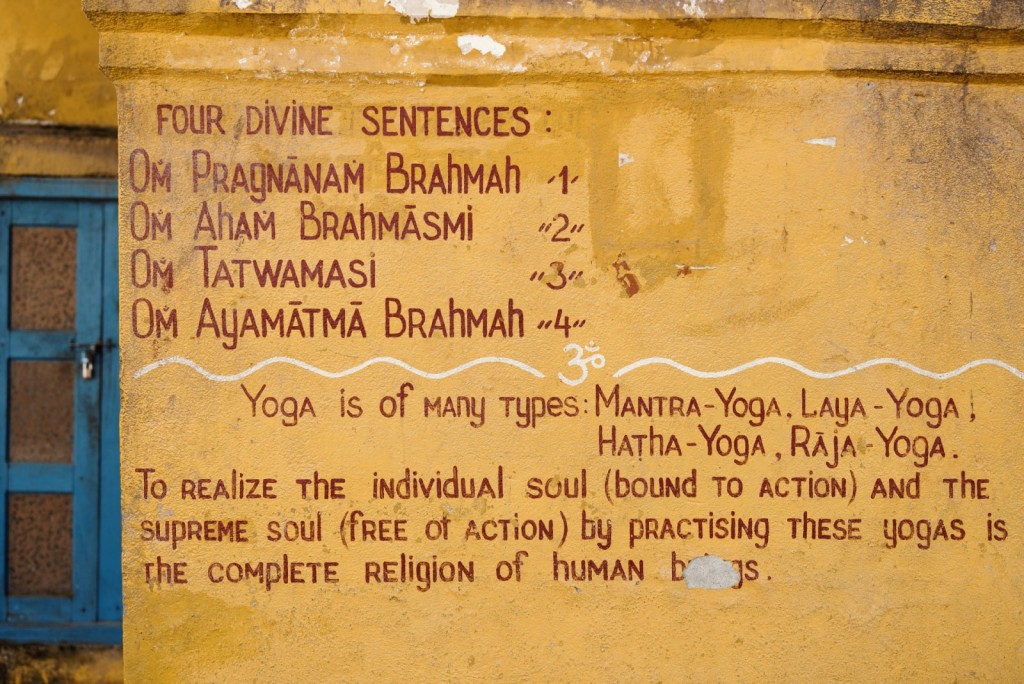 FOUR DIVINE SENTENCES :
Oṁ Pragnānaṁ Brahmah "1"
Oṁ Ahaṁ Brahmāsmi "2"
Oṁ Tatwamasi "3"
Oṁ Ayamātmā Brahmah "4"
ॐ
Yoga is of many types: Mantra-Yoga, Laya-Yoga,
Haṭha-Yoga, Rāja-Yoga.
To realize the individual soul (bound to action) and the
supreme soul (free of action) by practising these yogas is
the complete religion of human